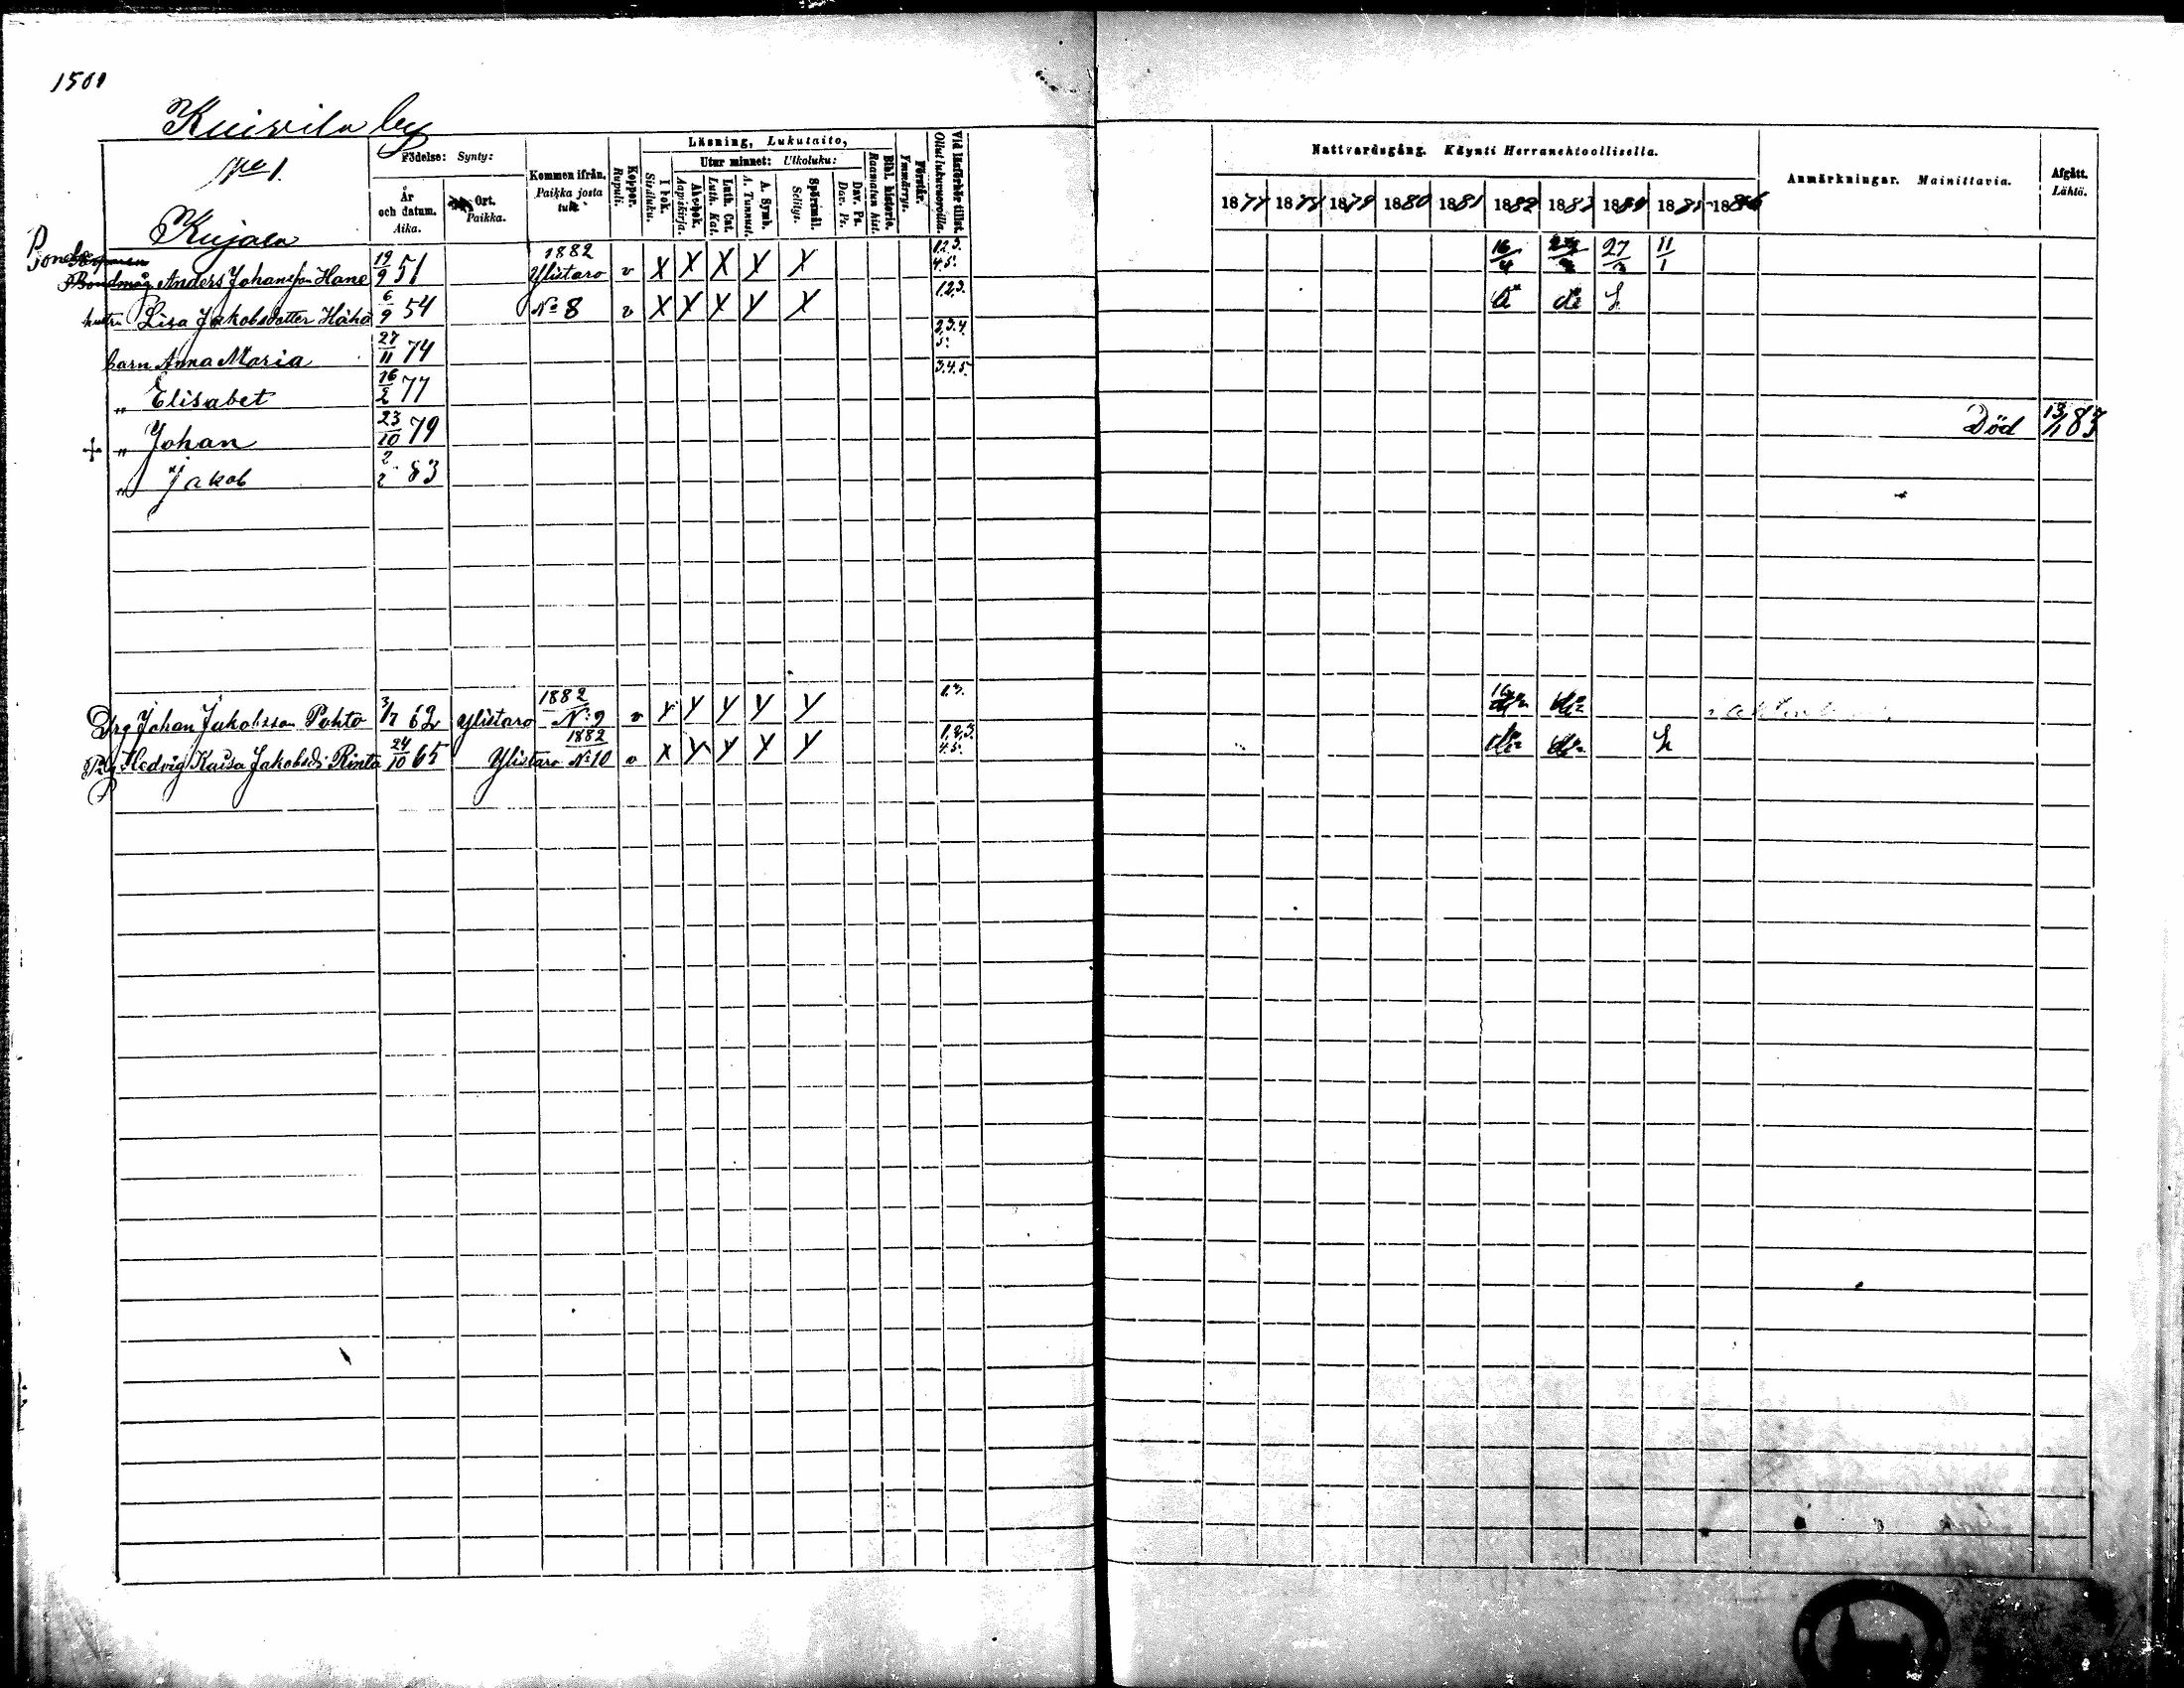 1501
Kuivila by
No 1.
Kujala
Födelse: Synty:
År och datum. Aika.
Ort. Paikka.
Kommen ifrån. Paikka josta tuli
Koppor. Rupuli.
Läsning, Lukutaito,
I bok. Sisäluku.
Utur minnet: Ulkoluku:
Abcbok. Aapiskirja.
Luth. Cat. Luth. Kat.
A. Symb. A. Tunnust.
Spörsmål. Selitys.
Dav. Ps. Dav. Ps.
Bibl. historie. Raamatun hist.
Förstår. Ymmärrys.
Vid läsförhör tillst. Ollut lukuvuoroilla.
Nattvardsgång. Käynti Herranehtoollisella.
1877 1878 1879 1880 1881 1882 1883 1884 1885 1886
Anmärkningar. Mainittavia.
Afgått. Lähtö.
Bonde
Bondmåg Anders Johansson Hane 19/9 51 1882 Ylistaro v X X X X X 1.2.3. 4.5. 16/4 27/3 11/1
hustru Lisa Jakobsdotter Hähä 6/9 54 No 8 v X X X X X 1.2.3.
barn Anna Maria 27/11 74 2.3.4. 5.
" Elisabet 16/2 77 3.4.5.
+ " Johan 23/10 79 Död 13/1 83
" Jakob 2/2 83
Drg Johan Jakobsson Pohto 3/7 62 Ylistaro 1882 No 9 v Y Y Y Y Y 1.3.
Pig. Hedvig Kaisa Jakobsd: Rinta 24/10 65 Ylistaro 1882 No 10 v X Y Y Y Y 1.2.3. 4.5.